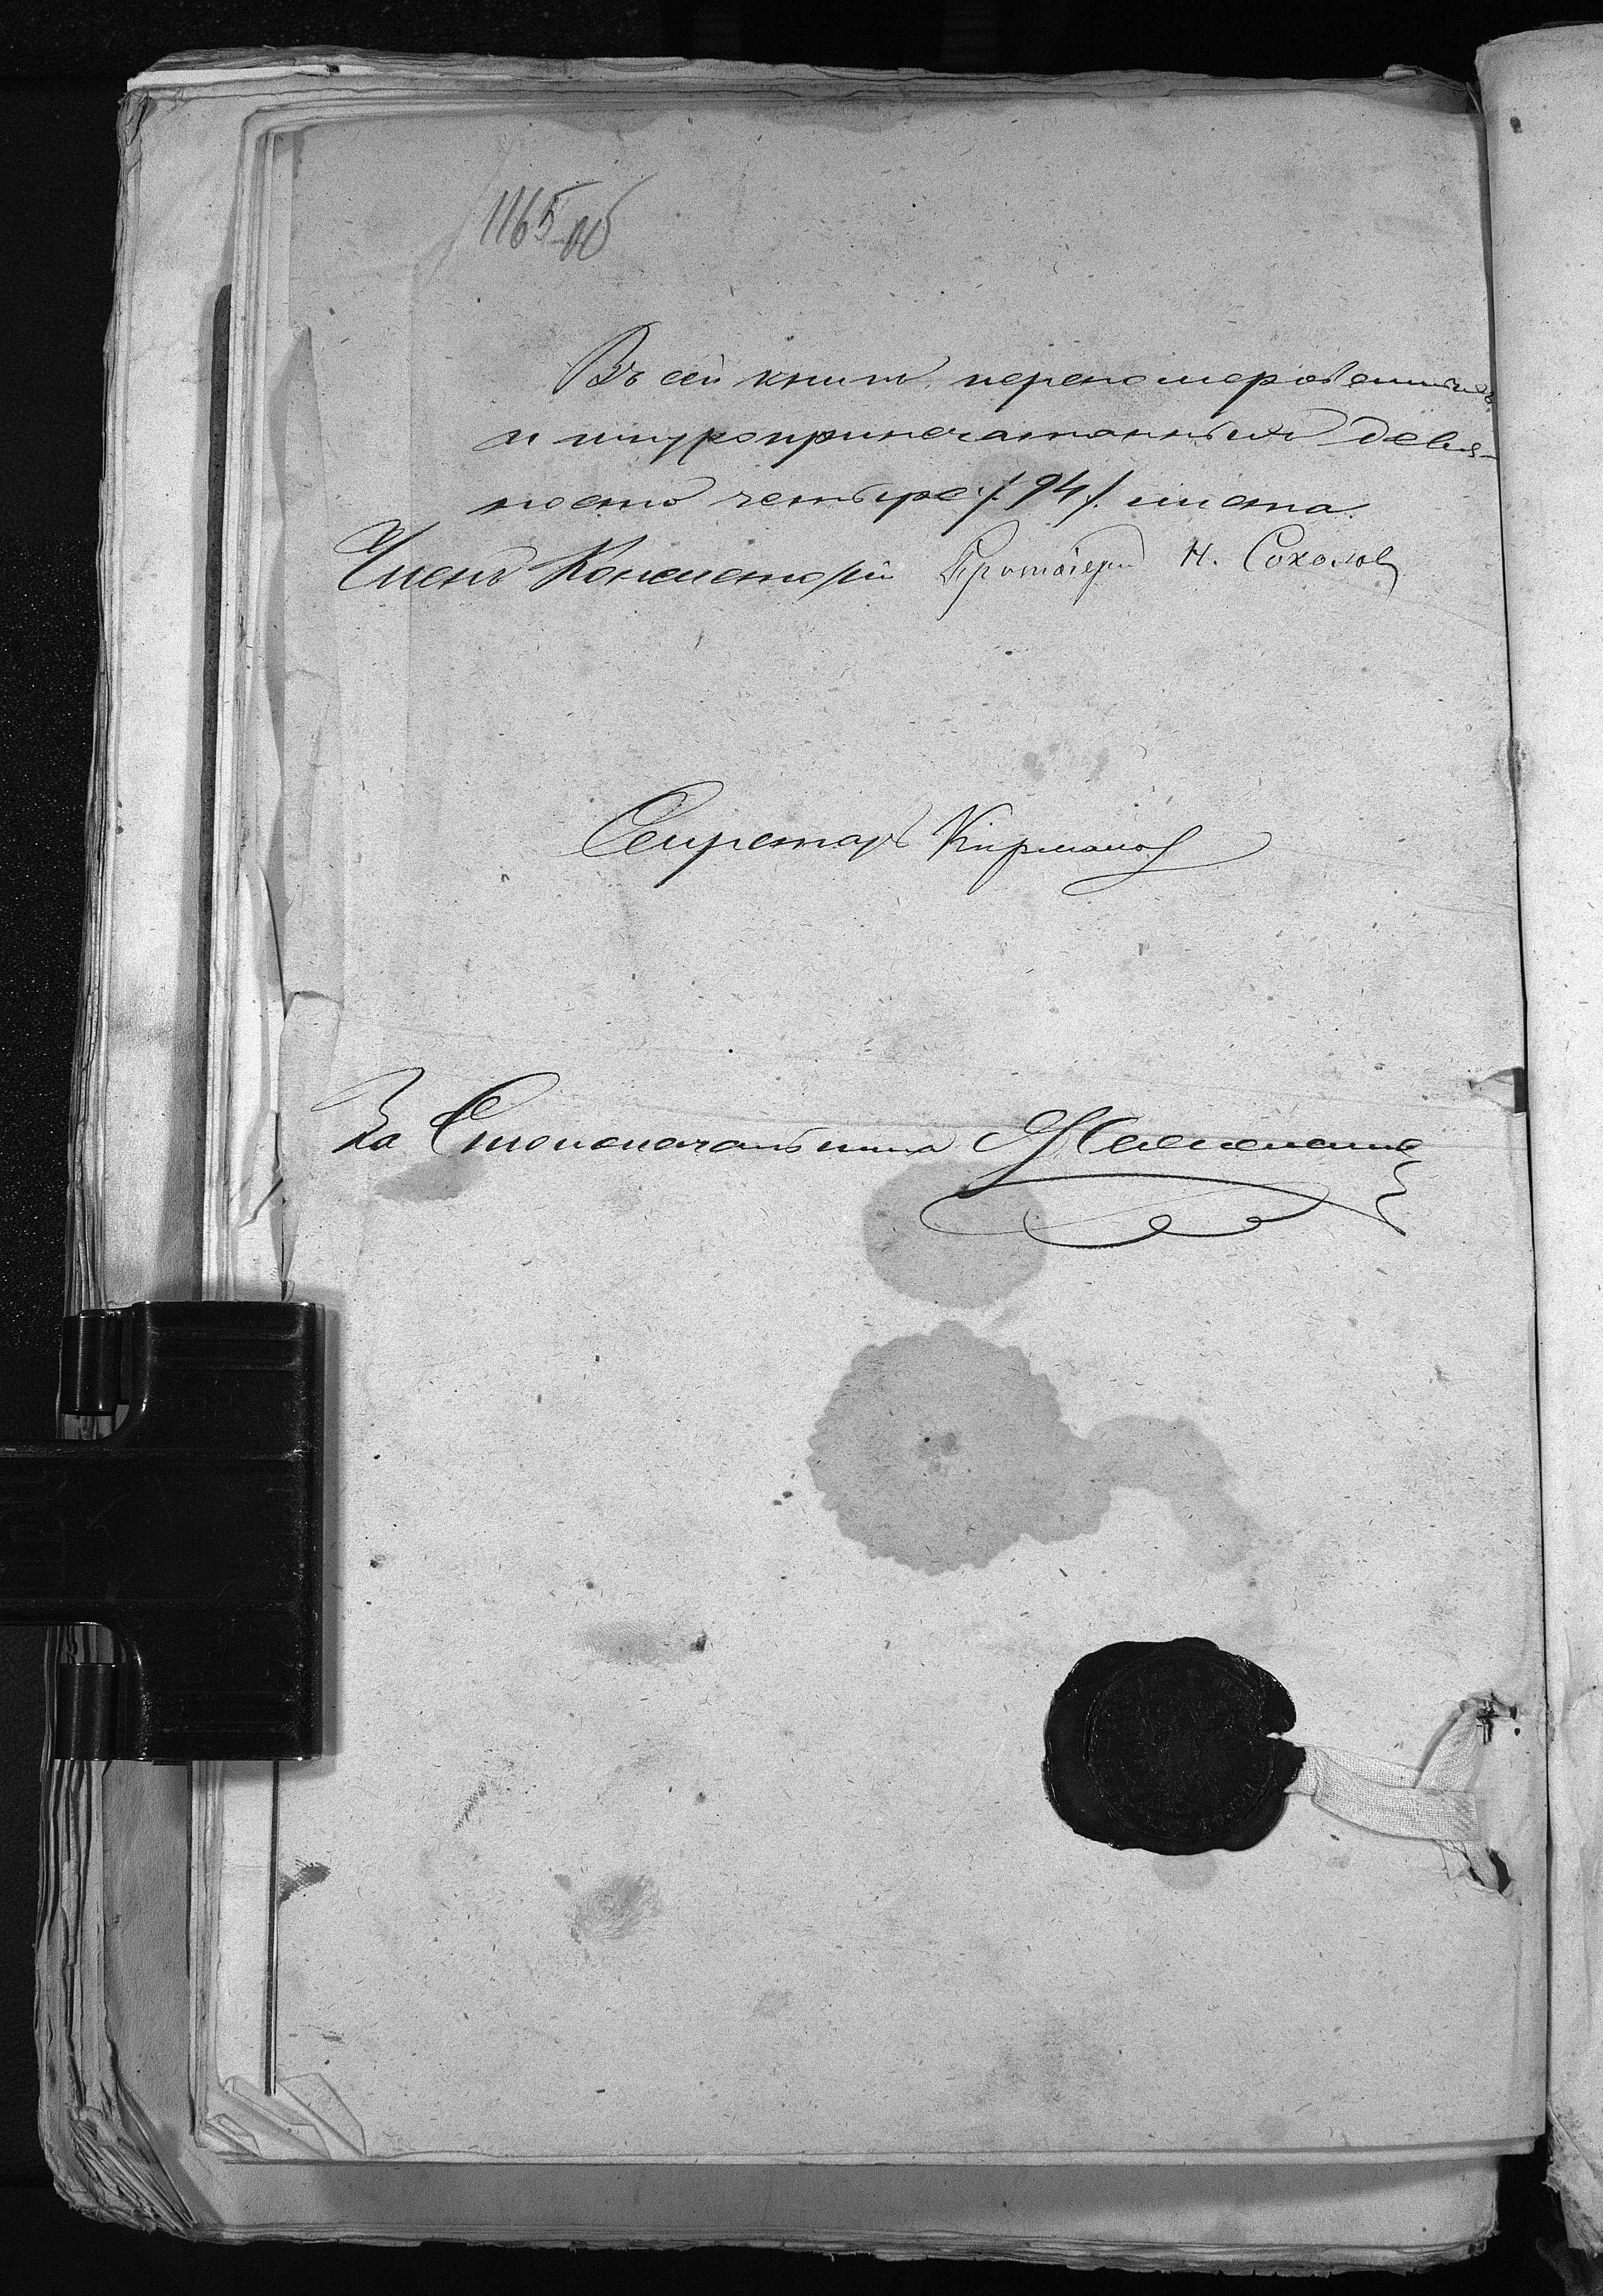 1165 об
Въ сей книгѣ перенумерованныхъ
и шнуроприпечатанныхъ девя-
носто четыре /94/. листа.
Членъ Консисторiи Протоiерей Н. Соколов
Секретарь Кирманов
За Столоначальника